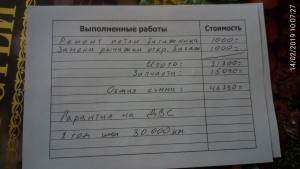 Выполненные работы Стоимость
Ремонт петли багажника 1000=
Замена рычажка откр. багаж 1000=
Итого: 31200=
Запчасти:
Общая сумма:
Гарантия на ДВС
30.000 км
14/02/2019 10:07:27